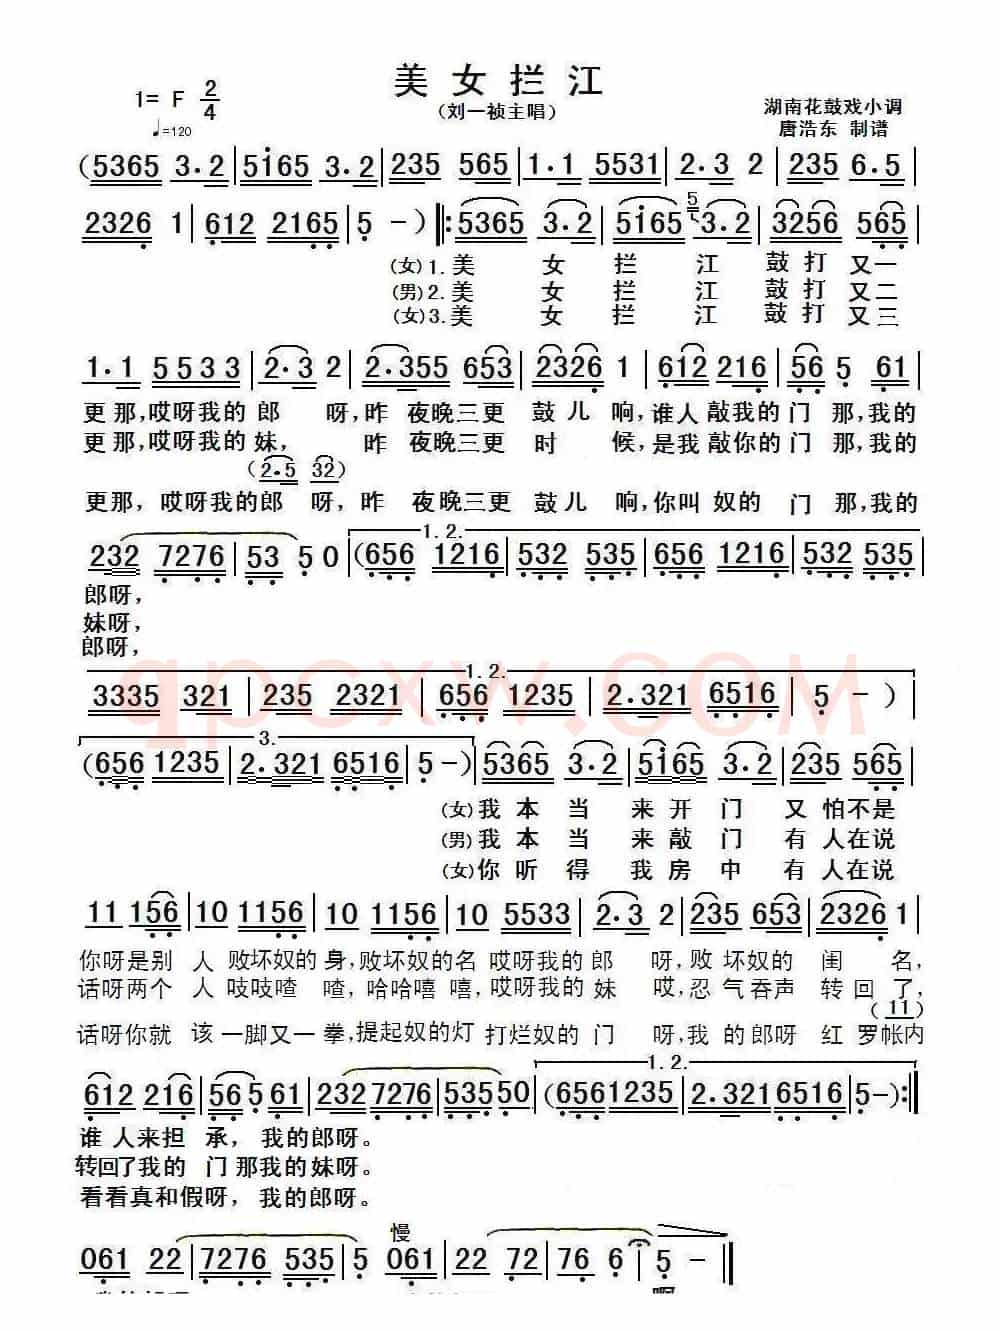 美女拦江
1= F 2/4
（刘一祯主唱）
湖南花鼓戏小调
♩=120
唐浩东 制谱
(5365 3·2 | 5i65 3·2 | 235 565 | 1·1 5531 | 2·3 2 | 235 6·5 |
2326 1 | 612 2165 | 5 － ) ‖: 5365 3·2 | 5i65 5 3·2 | 3256 565 |
(女) 1. 美 女 拦 江 鼓 打 又一
(男) 2. 美 女 拦 江 鼓 打 又二
(女) 3. 美 女 拦 江 鼓 打 又三
1·1 5533 | 2·3 2 | 2·355 653 | 2326 1 | 612 216 | 56 5 61 |
更那，哎呀我的 郎 呀，昨 夜晚三更 鼓 儿 响，谁人 敲我的 门 那，我的
更那，哎呀我的 妹， 昨 夜晚三更 时 候，是我 敲你的 门 那，我的
(2·5 32)
更那，哎呀我的郎 呀，昨 夜晚三更 鼓 儿 响，你叫 奴的 门 那，我的
1. 2.
232 7276 | 53 5 0 | (656 1216 | 532 535 | 656 1216 | 532 535 |
郎呀，
妹呀，
郎呀，
1. 2.
3335 321 | 235 2321 | 656 1235 | 2·321 6516 | 5 － ) |
3.
(656 1235 | 2·321 6516 | 5 － ) | 5365 3·2 | 5i65 3·2 | 235 565 |
(女) 我 本 当 来 开 门 又 怕不是
(男) 我 本 当 来 敲 门 有 人在说
(女) 你 听 得 我 房 中 有 人在说
11 156 | 10 1156 | 10 1156 | 10 5533 | 2·3 2 | 235 653 | 2326 1 |
你呀是别 人 败坏奴的 身，败坏奴的名 哎呀我的 郎 呀，败 坏奴的 闺 名，
话呀两个 人 吱吱喳 喳，哈哈嘻 嘻，哎呀我的 妹 哎，忍 气吞声 转 回 了，
(11)
话呀你就 该 一脚又一 拳，提起奴的灯 打烂奴的 门 呀，我 的 郎呀 红 罗帐内
1. 2.
612 216 | 56 5 61 | 232 7276 | 535 50 | (656 1235 | 2·321 6516 | 5 － ) :‖
谁 人来担 承， 我的郎呀。
转回了我的 门 那我的妹呀。
看看真和假呀， 我的郎呀。
慢
061 22 | 7276 535 | 5 061 | 22 72 | 76 6 | 5 － ‖